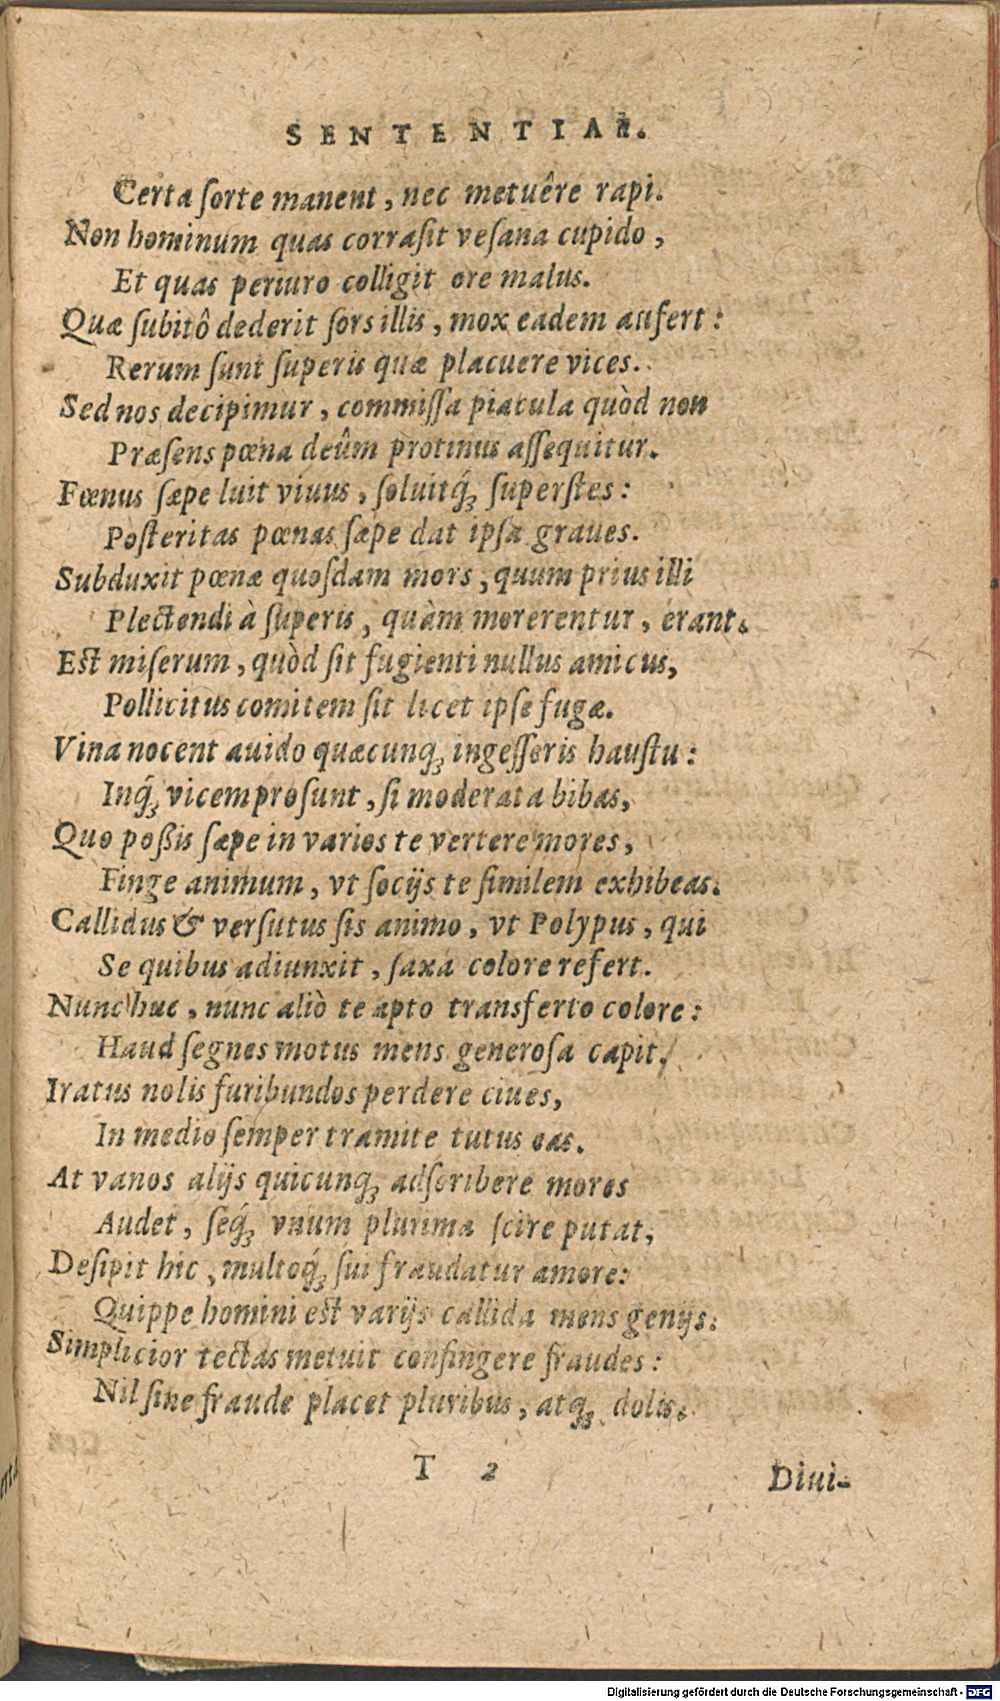 SENTENTIAE.
Certa ſorte manent, nec metuêre rapi.
Non hominum quas corraſit veſana cupido,
Et quas periuro colligit ore malus.
Quæ ſubitô dederit ſors illis, mox eadem aufert:
Rerum ſunt ſuperis quæ placuere vices.
Sed nos decipimur, commiſſa piacula quòd non
Præſens pœna deûm protinus aſſequitur.
Fœnus ſæpe luit viuus, ſoluitq́ꝫ ſuperſtes:
Poſteritas pœnas ſæpe dat ipſa graues.
Subduxit pœnæ quoſdam mors, quum prius illi
Plectendi à ſuperis, quàm morerentur, erant.
Eſt miſerum, quòd ſit fugienti nullus amicus,
Pollicitus comitem ſit licet ipſe fugæ.
Vina nocent auido quæcunqꝫ ingeſſeris hauſtu:
Inq́ꝫ vicem proſunt, ſi moderata bibas,
Quo poßis ſæpe in varios te vertere mores,
Finge animum, vt ſocijs te ſimilem exhibeas.
Callidus & verſutus ſis animo, vt Polypus, qui
Se quibus adiunxit, ſaxa colore refert.
Nunc huc, nunc aliò te apto transferto colore:
Haud ſegnes motus mens generoſa capit.
Iratus nolis furibundos perdere ciues,
In medio ſemper tramite tutus eas.
At vanos alijs quicunqꝫ adſcribere mores
Audet, ſeq́ꝫ vnum plurima ſcire putat,
Deſipit hic, multoq́ꝫ ſui fraudatur amore:
Quippe homini eſt varijs callida mens genijs.
Simplicior tectas metuit confingere fraudes:
Nil ſine fraude placet pluribus, atqꝫ dolis.
T 2
Diui-
Digitalisierung gefördert durch die Deutsche Forschungsgemeinschaft - DFG